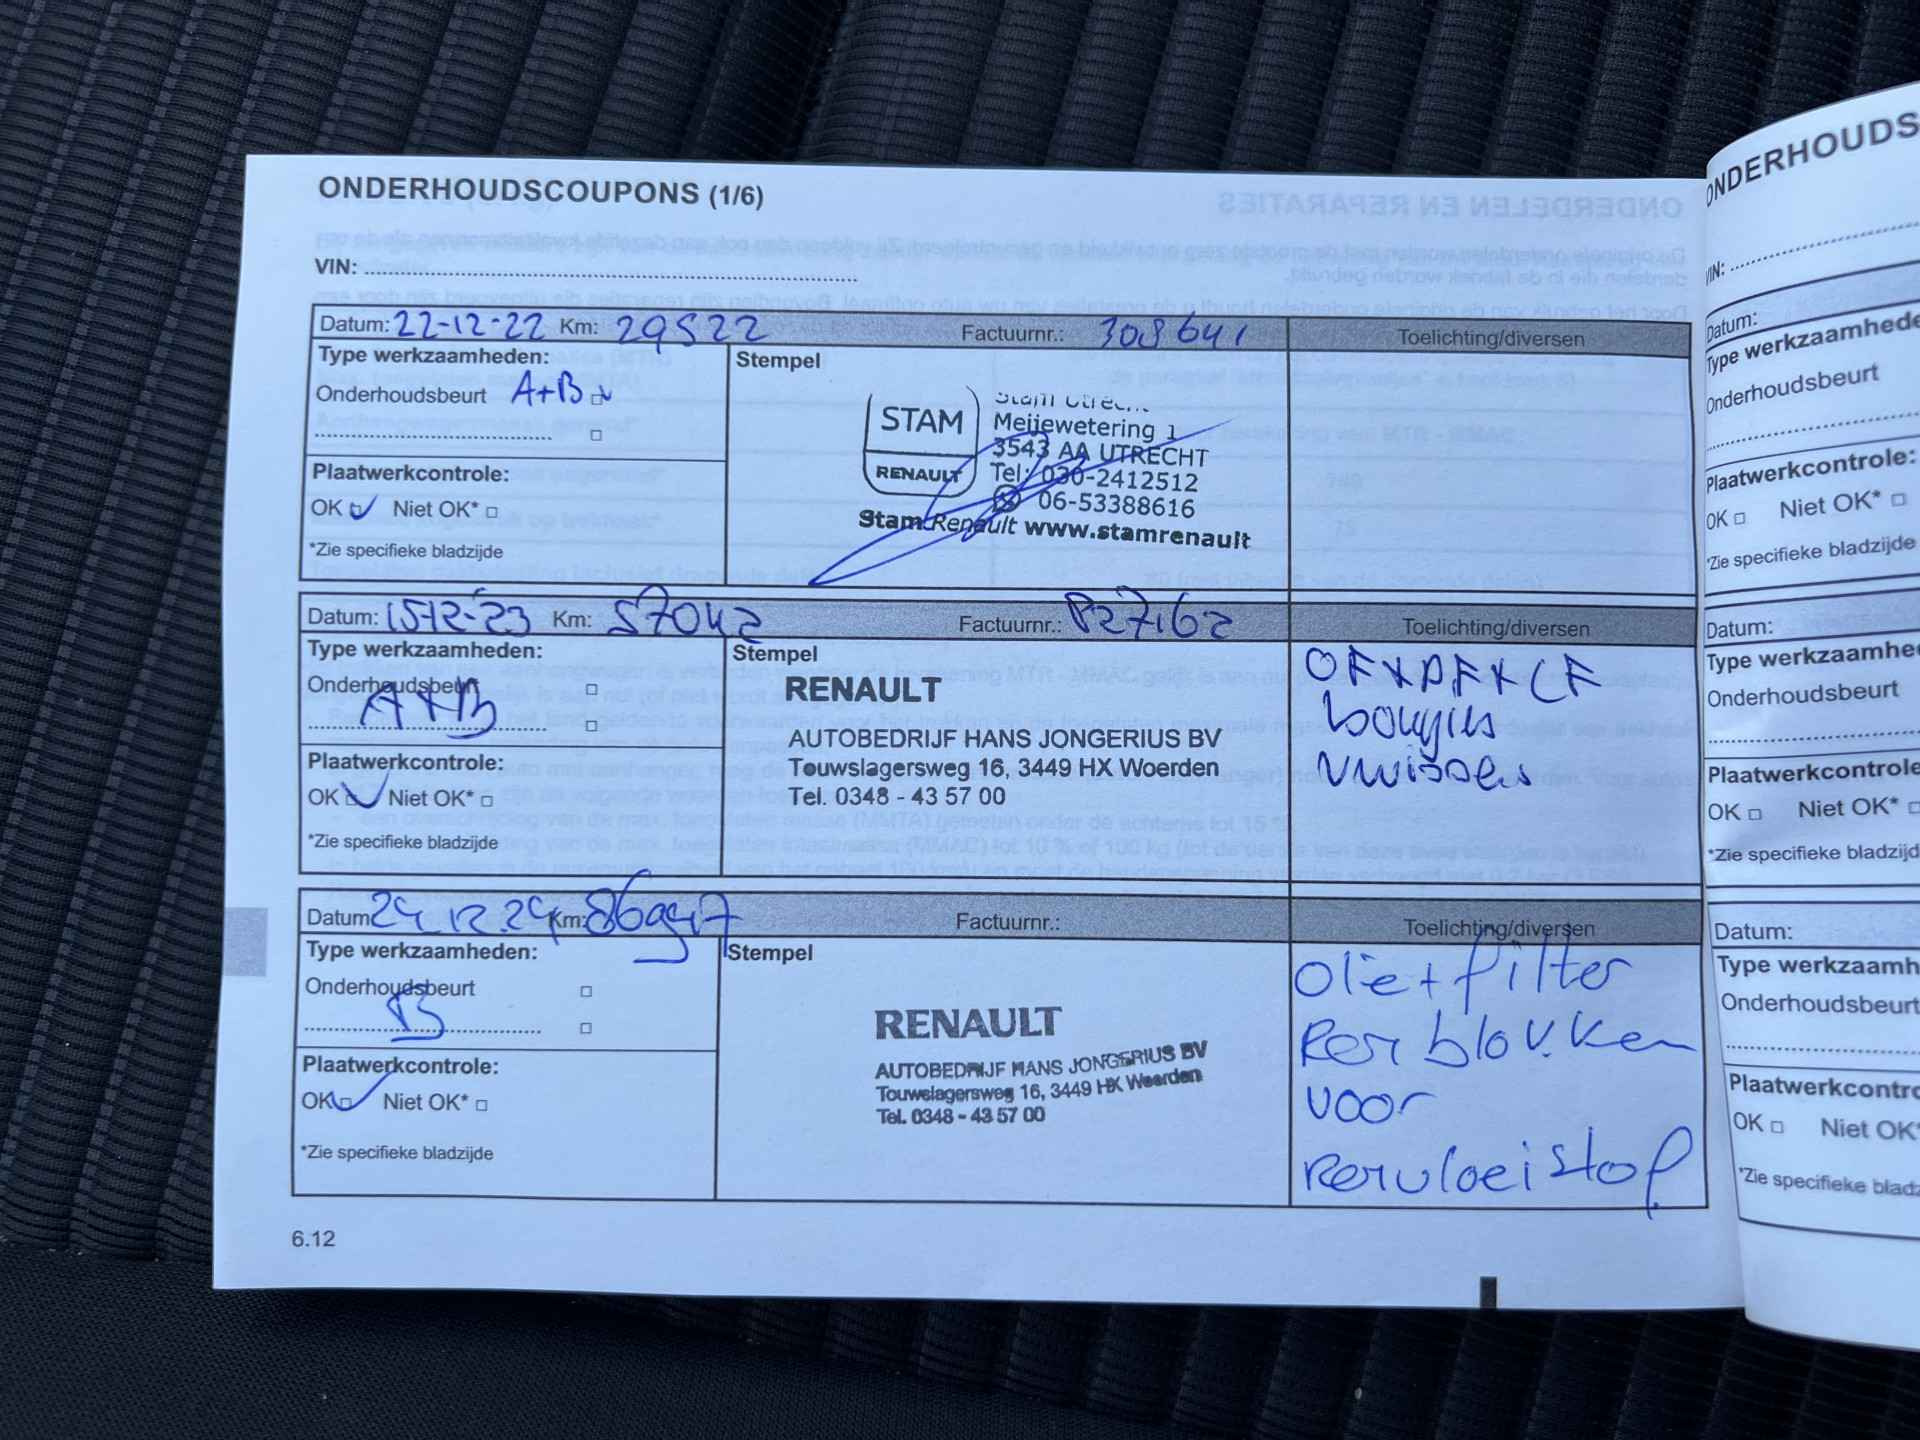 ONDERHOUDSCOUPONS (1/6)
VIN:
Datum: 22-12-22 Km: 29522 Factuurnr.: 309641 Toelichting/diversen
Type werkzaamheden:
Stempel
Onderhoudsbeurt A+B
Plaatwerkcontrole:
OK Niet OK*
*Zie specifieke bladzijde
STAM
RENAULT
Stam Utrecht
Meijewetering 1
3543 AA UTRECHT
Tel: 030-2412512
06-53388616
Stam Renault www.stamrenault
Datum: 15-12-23 Km: 57042 Factuurnr.: 827162 Toelichting/diversen
Type werkzaamheden:
Stempel
Onderhoudsbeurt
A+B
Plaatwerkcontrole:
OK Niet OK*
*Zie specifieke bladzijde
RENAULT
AUTOBEDRIJF HANS JONGERIUS BV
Touwslagersweg 16, 3449 HX Woerden
Tel. 0348 - 43 57 00
OF+DF+CF
bougies
Datum 24.12.24 Km: 86947 Factuurnr.: Toelichting/diversen
Type werkzaamheden:
Stempel
Onderhoudsbeurt
B
Plaatwerkcontrole:
OK Niet OK*
*Zie specifieke bladzijde
RENAULT
AUTOBEDRIJF HANS JONGERIUS BV
Touwslagersweg 16, 3449 HX Woerden
Tel. 0348 - 43 57 00
Olie+filter
Remblokken
voor
Remvloeistof
6.12
ONDERHOUDS
VIN:
Datum:
Type werkzaamhede
Onderhoudsbeurt
Plaatwerkcontrole:
OK Niet OK*
*Zie specifieke bladzijde
Datum:
Type werkzaamhe
Onderhoudsbeurt
Plaatwerkcontrole
OK Niet OK*
*Zie specifieke bladzijd
Datum:
Type werkzaamh
Onderhoudsbeurt
Plaatwerkcontro
OK Niet OK*
*Zie specifieke bladz